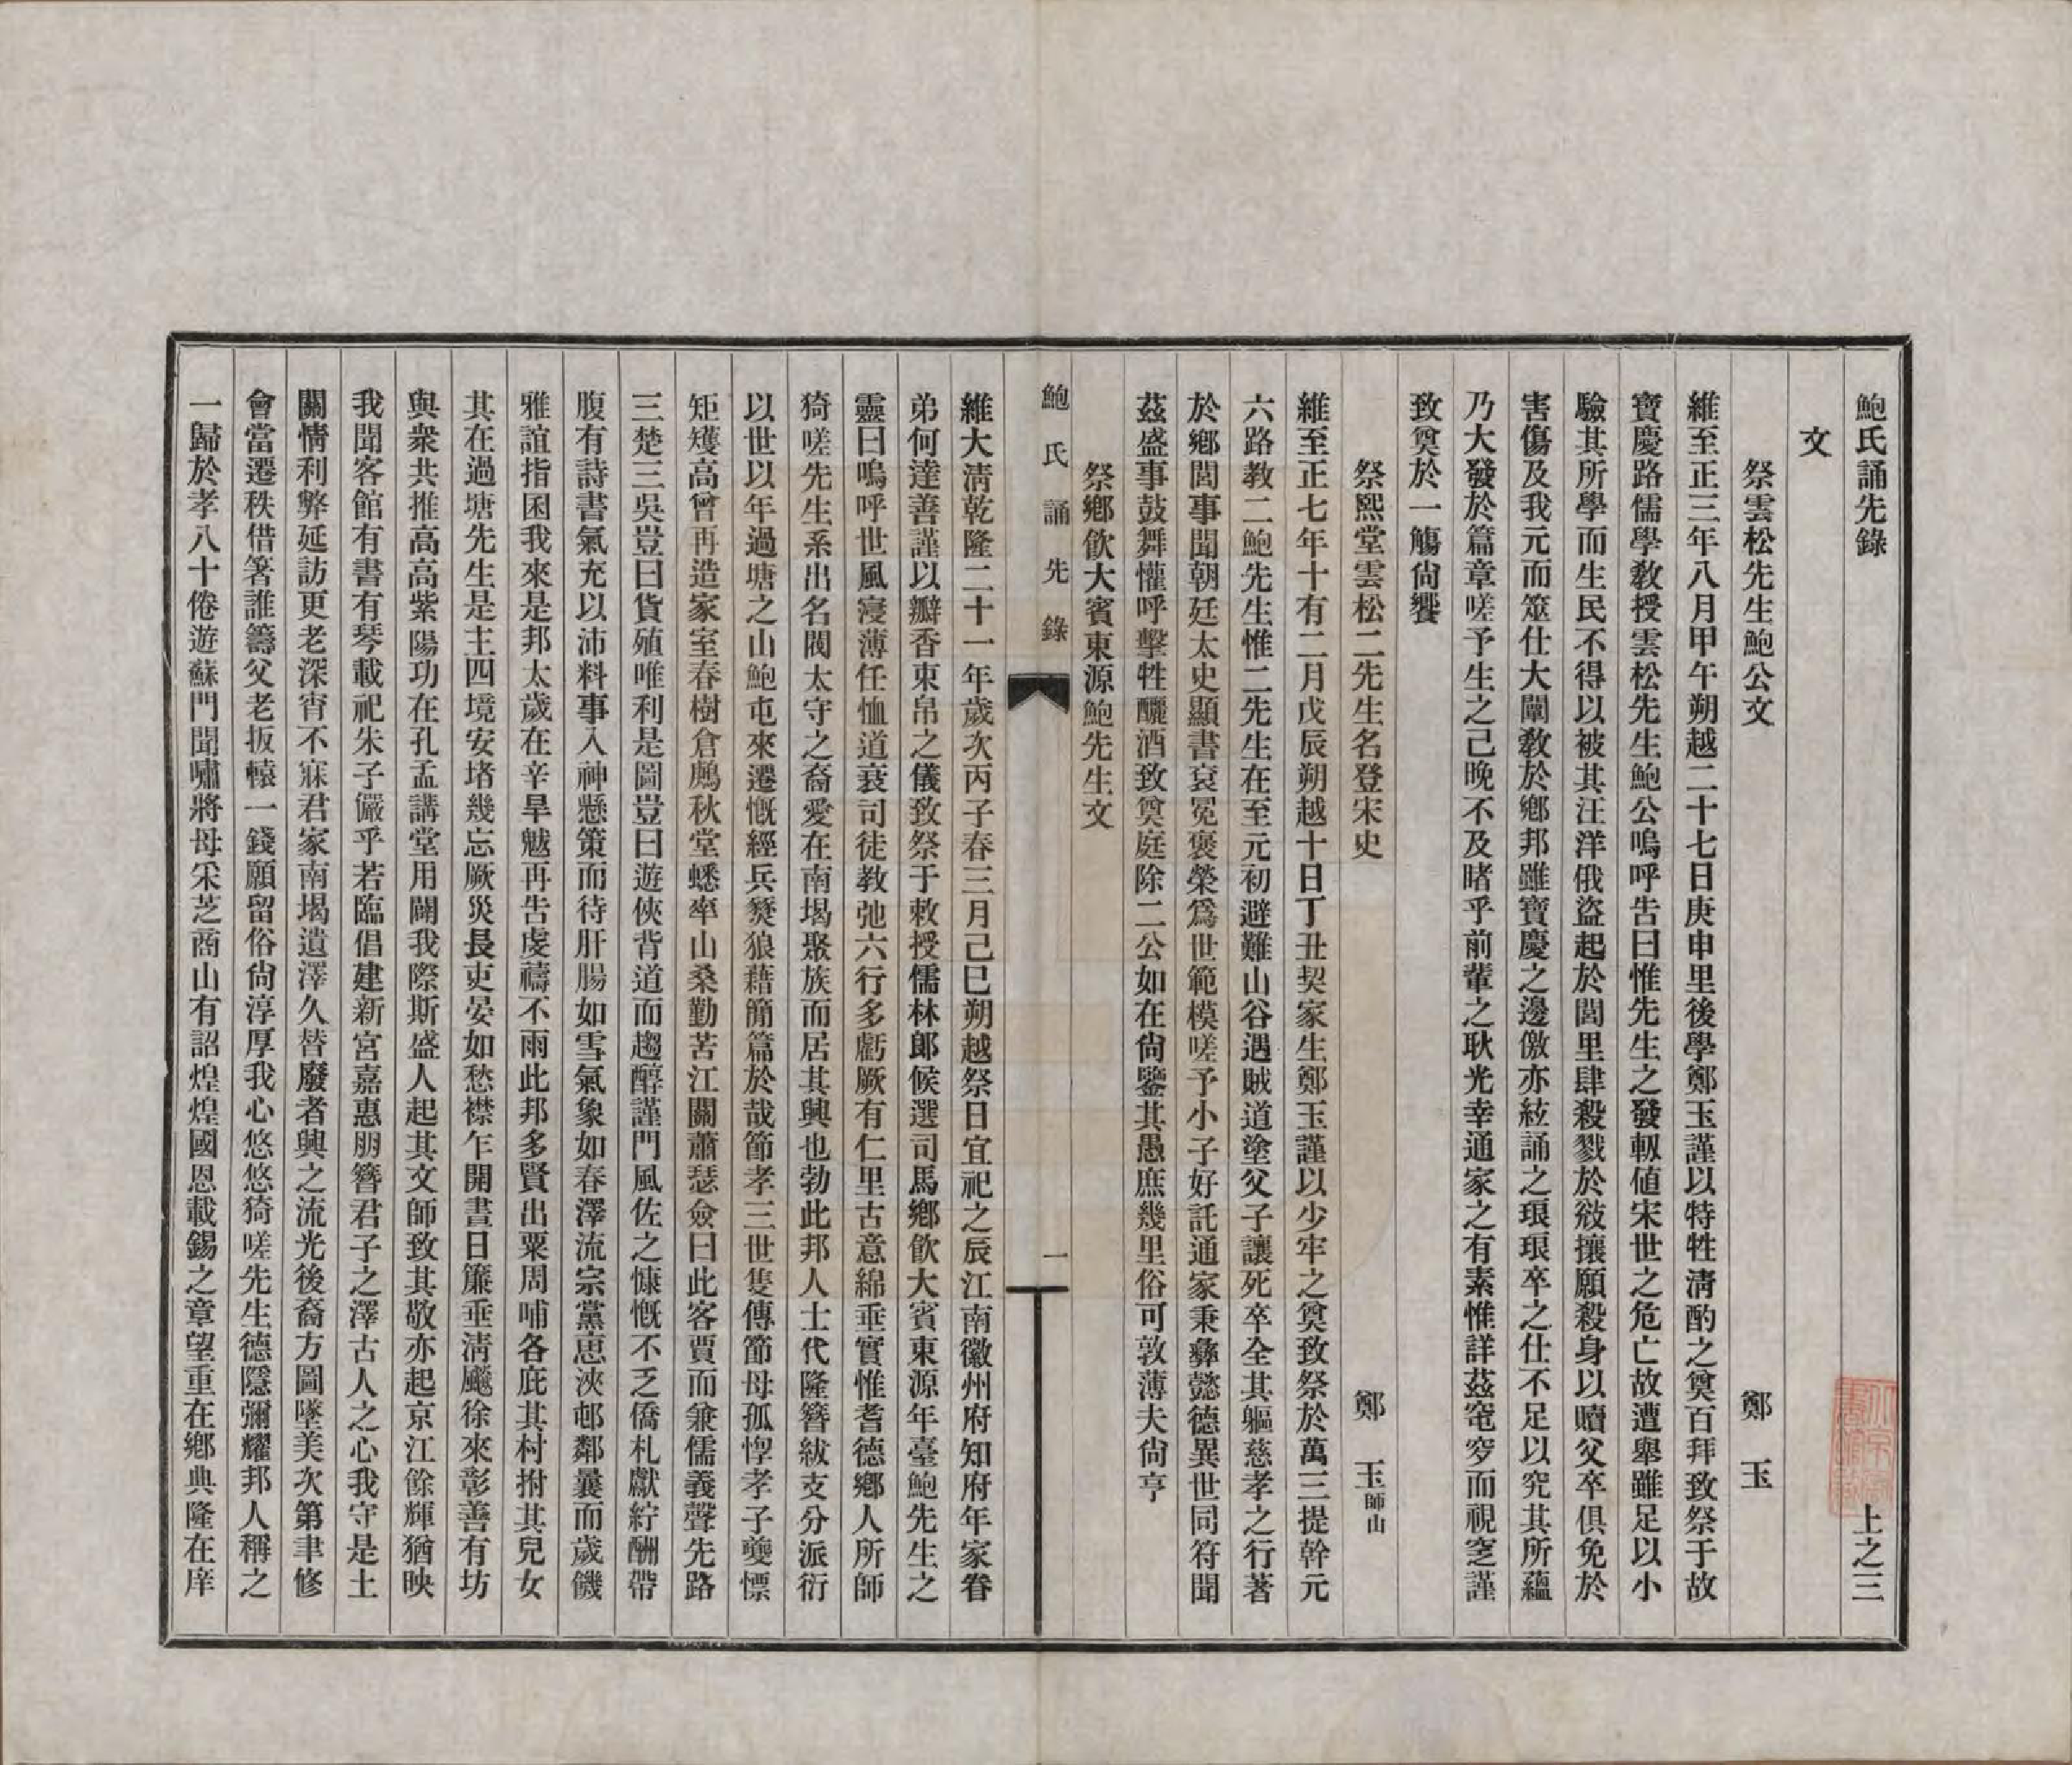 鮑氏誦先錄　上之三
文
祭雲松先生鮑公文　鄭　玉
維至正三年八月甲午朔越二十七日庚申里後學鄭玉謹以特牲淸酌之奠百拜致祭于故
寶慶路儒學敎授雲松先生鮑公嗚呼吿曰惟先生之發軔値宋世之危亡故遭舉雖足以小
驗其所學而生民不得以被其汪洋俄盜起於閭里肆殺戮於敓攘願殺身以贖父卒俱免於
害傷及我元而筮仕大闡敎於鄕邦雖寶慶之邊儌亦絃誦之琅琅卒之仕不足以究其所蘊
乃大發於篇章嗟予生之已晚不及睹乎前輩之耿光幸通家之有素惟詳茲窀穸而視窆謹
致奠於一觴尙饗
祭熙堂雲松二先生名登宋史　鄭　玉師山
維至正七年十有二月戊辰朔越十日丁丑契家生鄭玉謹以少牢之奠致祭於萬三提幹元
六路教二鮑先生惟二先生在至元初避難山谷遇賊道塗父子讓死卒全其軀慈孝之行著
於鄕閭事聞朝廷太史顯書袞冕褒榮爲世範模嗟予小子好託通家秉彝懿德異世同符聞
茲盛事鼓舞懽呼擊牲釃酒致奠庭除二公如在尙鑒其愚庶幾里俗可敦薄夫尙亨
祭鄕飮大賓東源鮑先生文
鮑氏誦先錄　一
維大淸乾隆二十一年歲次丙子春三月己巳朔越祭日宜祀之辰江南徽州府知府年家眷
弟何達善謹以瓣香東帛之儀致祭于敕授儒林郞候選司馬鄕飮大賓東源年臺鮑先生之
靈曰嗚呼世風寖薄任恤道衰司徒教弛六行多虧厥有仁里古意綿垂實惟耆德鄕人所師
猗嗟先生系出名閥太守之裔愛在南堨聚族而居其興也勃此邦人士代隆簪紱支分派衍
以世以年過塘之山鮑屯來遷慨經兵燹狼藉簡篇於哉節孝三世隻傳節母孤惸孝子夔慄
矩矱高曾再造家室春樹倉鷉秋堂蟋蟀山桑勤苦江關蕭瑟僉曰此客賈而兼儒義聲先路
三楚三吳豈曰貨殖唯利是圖豈曰遊俠背道而趨醇謹門風佐之慷慨不乏僑札獻紵酬帶
腹有詩書氣充以沛料事入神懸策而待肝腸如雪氣象如春澤流宗黨恵浹邨鄰曩而歲饑
雅誼指囷我來是邦太歲在辛旱魃再吿虔禱不雨此邦多賢出粟周哺各庇其村拊其兒女
其在過塘先生是主四境安堵幾忘厥災長吏晏如愁襟乍開晝日簾垂淸飈徐來彰善有坊
與衆共推高高紫陽功在孔孟講堂用闢我際斯盛人起其文師致其敬亦起京江餘輝猶映
我聞客館有書有琴載祀朱子儼乎若臨倡建新宮嘉惠朋簪君子之澤古人之心我守是土
關情利弊延訪更老深宵不寐君家南堨遺澤久替廢者興之流光後裔方圖墜美次第聿修
會當遷秩借箸誰籌父老扳轅一錢願留俗尙淳厚我心悠悠猗嗟先生德隱彌耀邦人稱之
一歸於孝八十倦遊蘇門聞嘯將母采芝商山有詔煌煌國恩載錫之章望重在鄕典隆在庠